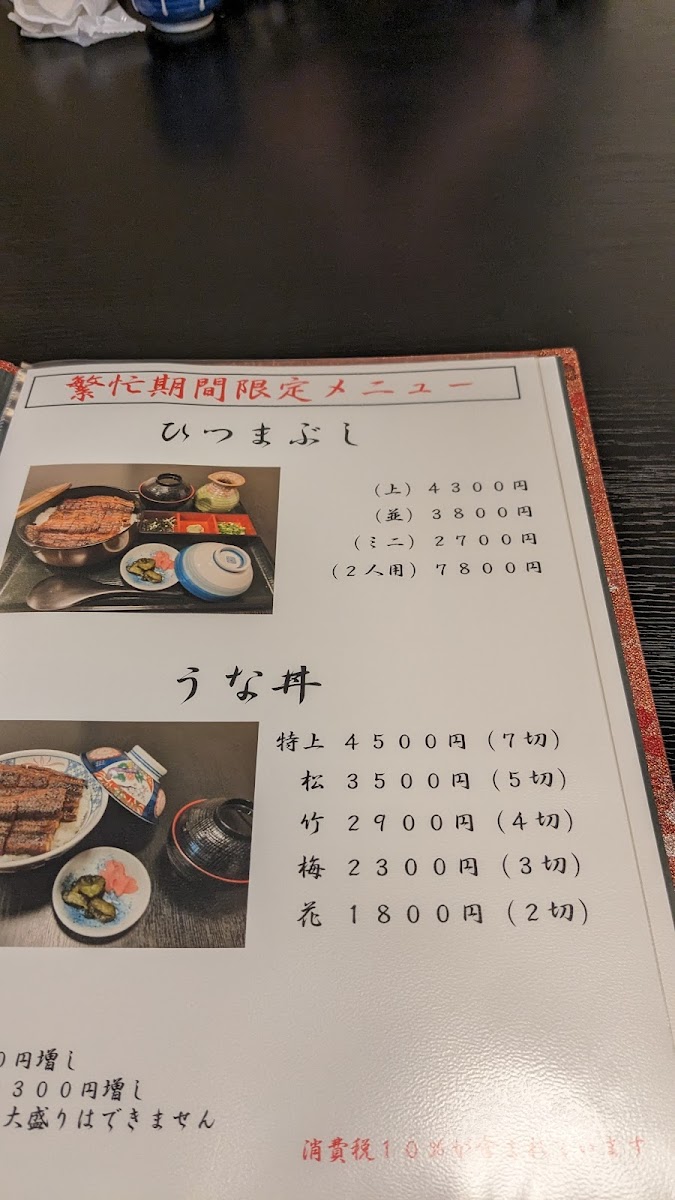 繁忙期間限定メニュー
ひつまぶし
(上) 4300円
(並) 3800円
(ミニ) 2700円
(2人用) 7800円
うな丼
特上 4500円 (7切)
松 3500円 (5切)
竹 2900円 (4切)
梅 2300円 (3切)
花 1800円 (2切)
0円増し
300円増し
大盛りはできません
消費税10%が含まれています